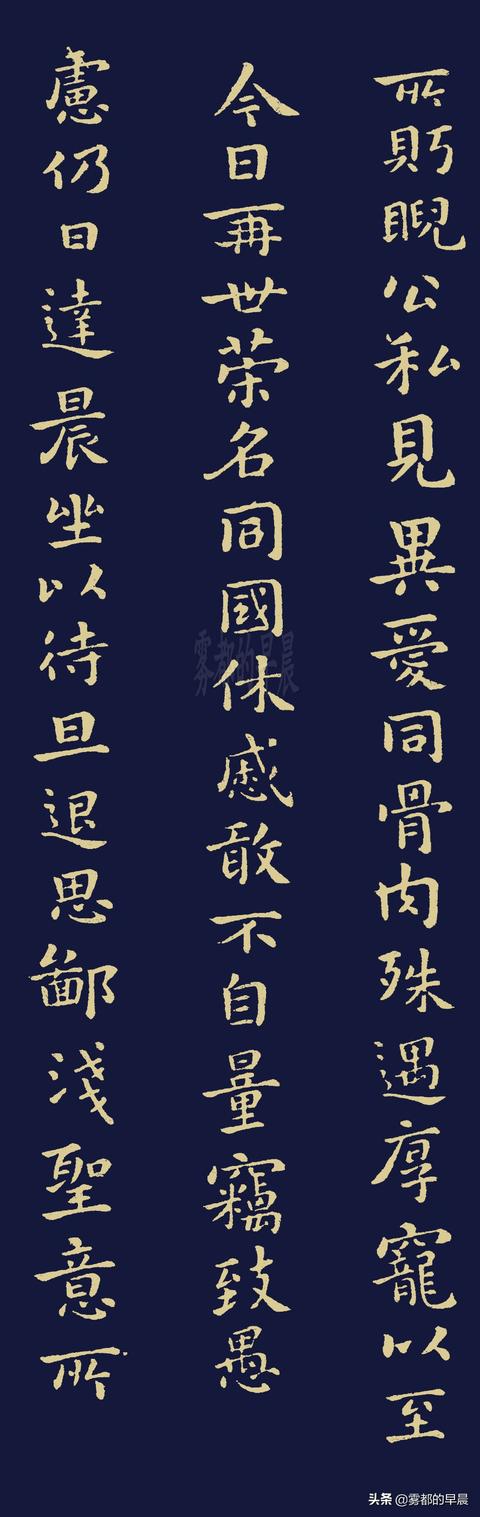 所眄睨公私見異愛同骨肉殊遇厚寵以至
今日再世榮名同國休慼敢不自量竊致愚
慮仍日達晨坐以待旦退思鄙淺聖意所
雾都的早晨
头条 @雾都的早晨